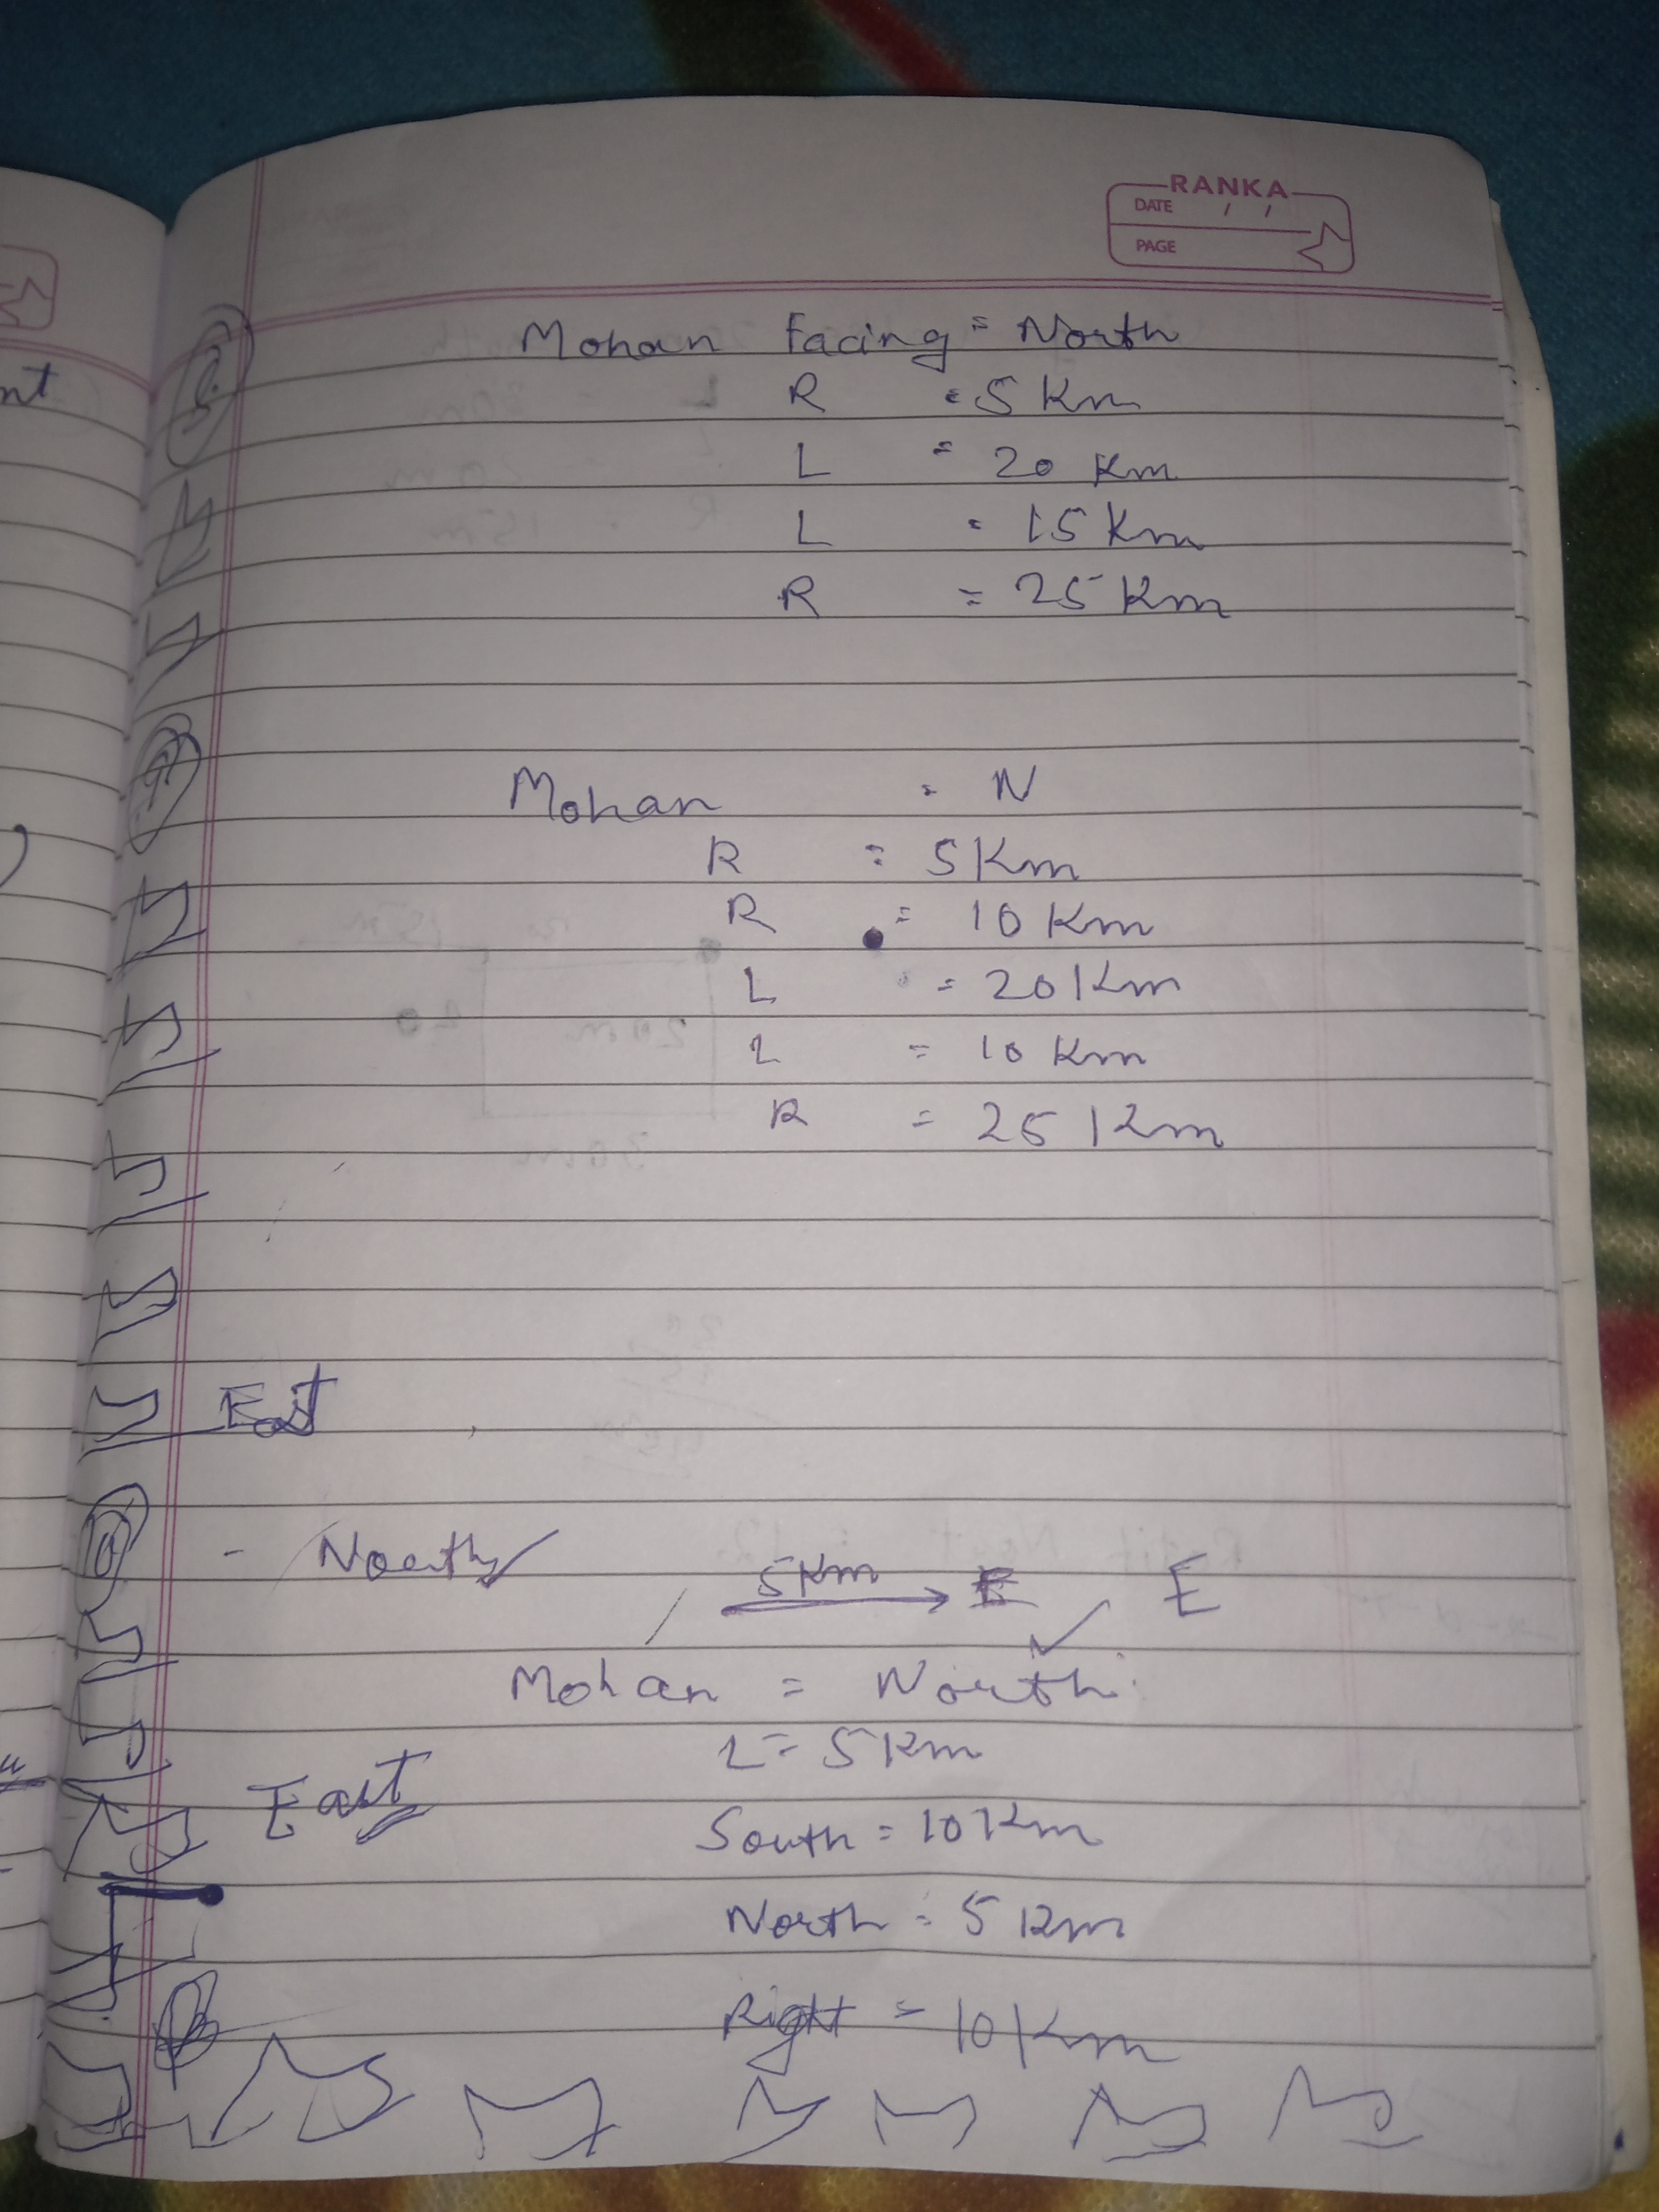 RANKA
DATE / /
PAGE
nt
Mohan Facing = North
R = 5 Km
L = 20 Km
L = 15 Km
R = 25 Km
Mohan = N
R = 5 Km
R = 10 Km
L = 20 Km
L = 10 Km
R = 25 Km
East
- North
5 Km E E
Mohan = North
L = 5 Km
East
South = 10 Km
North = 5 Km
Right = 10 Km